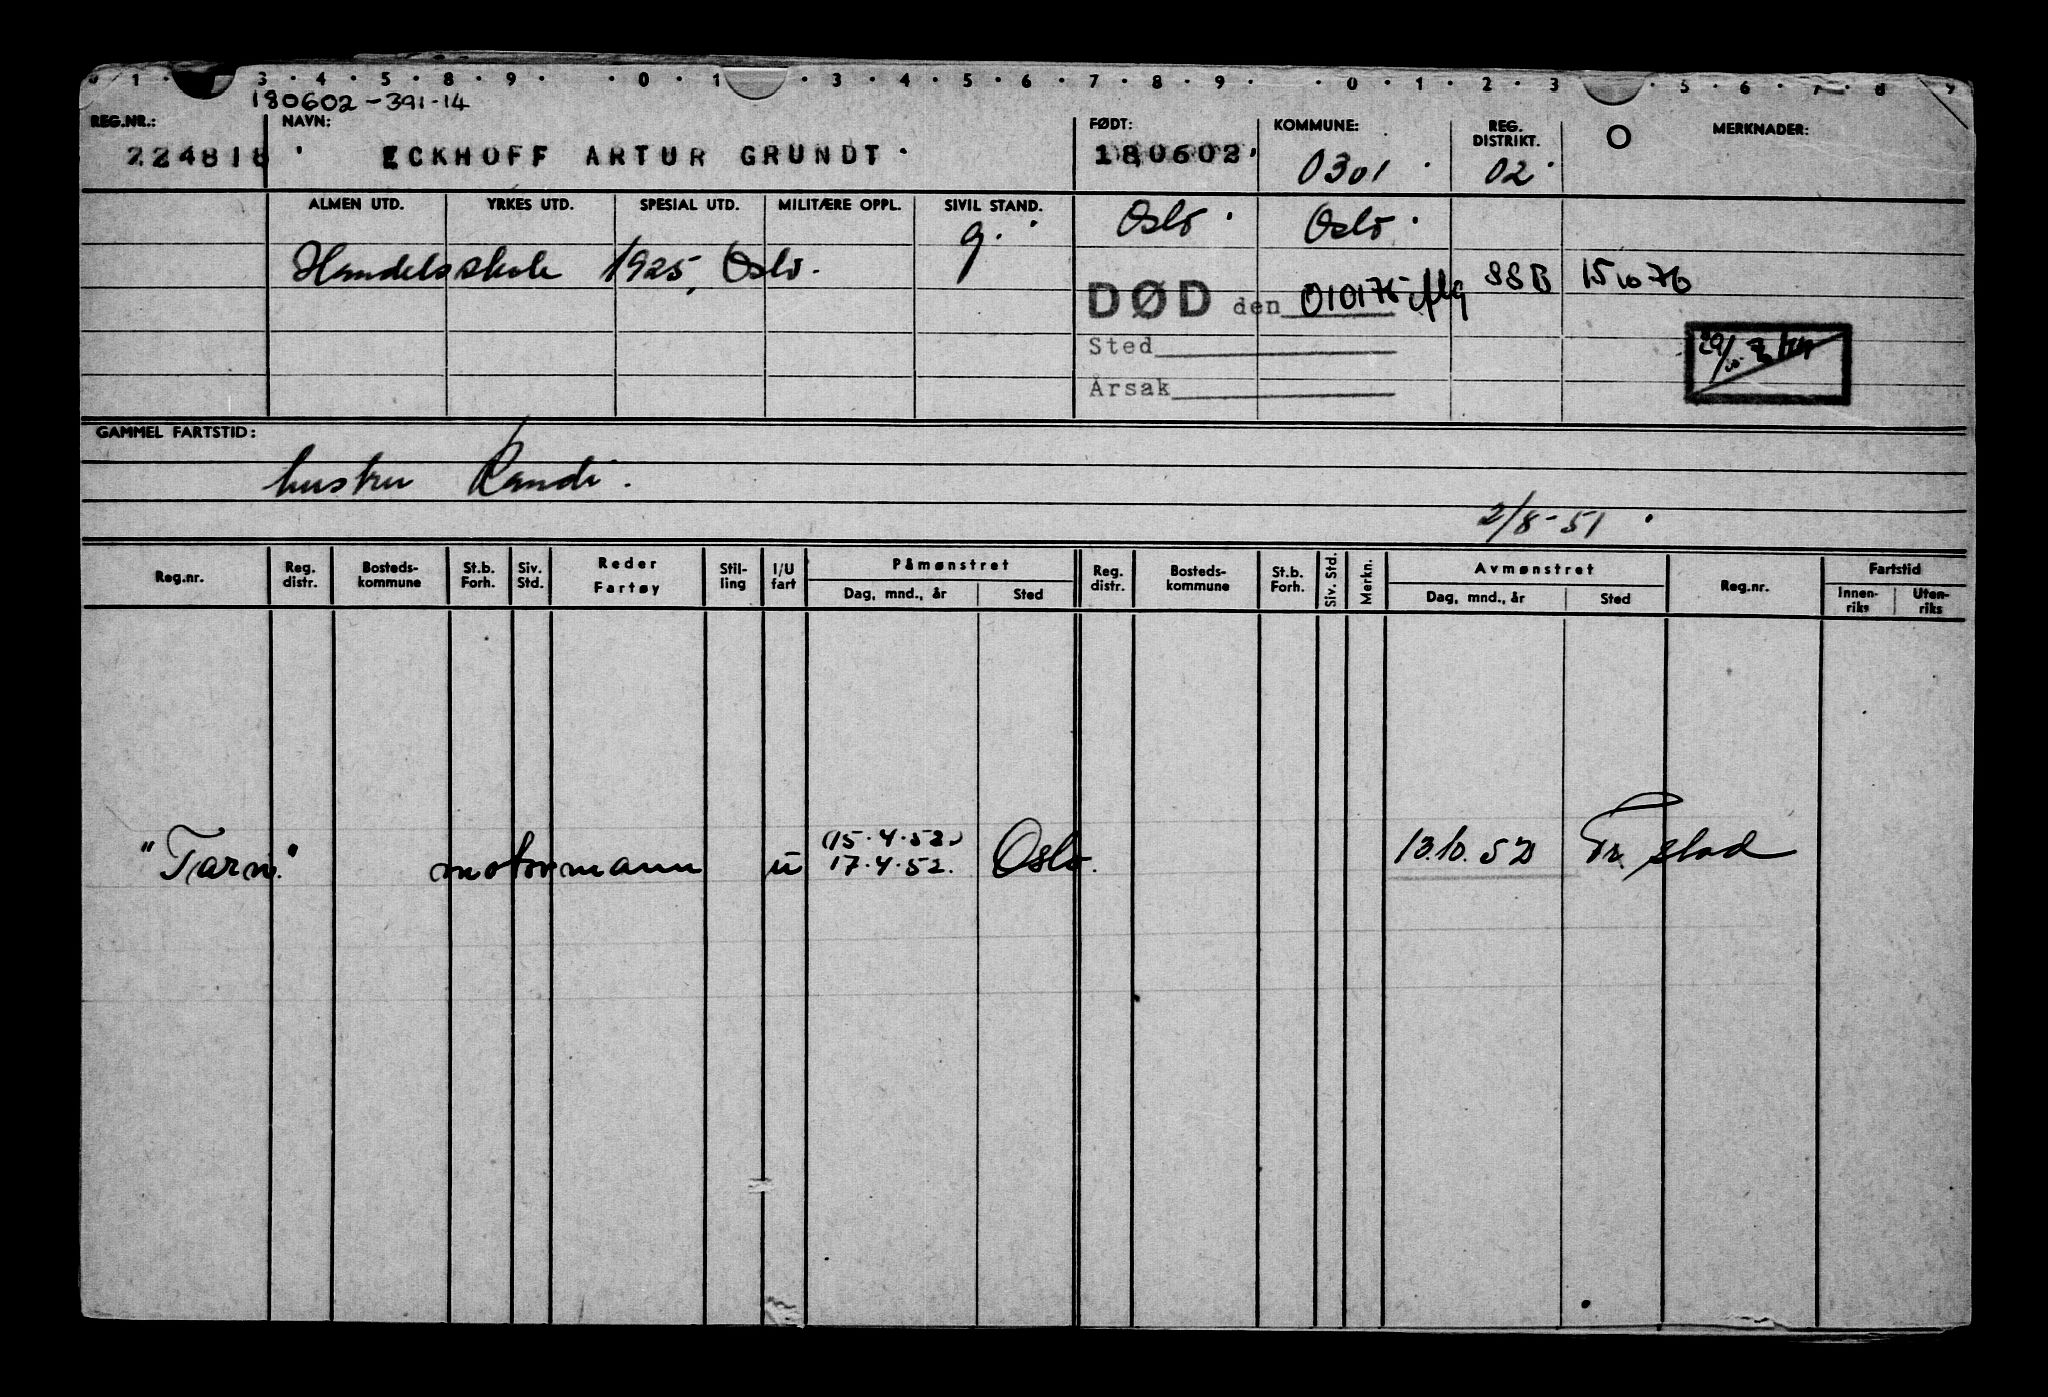 0 1 3 4 5 8 9 0 1 3 4 5 6 7 8 9 0 1 2 3 5 6 7 8 9
180602-391-14
REG.NR.: NAVN: FØDT: KOMMUNE: REG. DISTRIKT. O MERKNADER:
224818 ECKHOFF ARTUR GRUNDT 180602. 0301 02
ALMEN UTD. YRKES UTD. SPESIAL UTD. MILITÆRE OPPL. SIVIL STAND. Oslo Oslo
g.
Handelsskole 1925, Oslo.
DØD den 010175 SSB 15 10 76
Sted
Årsak
GAMMEL FARTSTID:
hustru Randi.
2/8-51
Reg.nr. Reg. distr. Bosteds-kommune St.b. Forh. Siv. Std. Reder Fartøy Stil-ling I/U fart Påmønstret Dag, mnd., år Sted Reg. distr. Bosteds-kommune St.b. Forh. Siv. Std. Merkn. Avmønstret Dag, mnd., år Sted Reg.nr. Fartstid Innen-riks Uten-riks
(15.4.52)
"Tarn." motormann u 17.4.52. Oslo. 13.10.52 Fr.stad